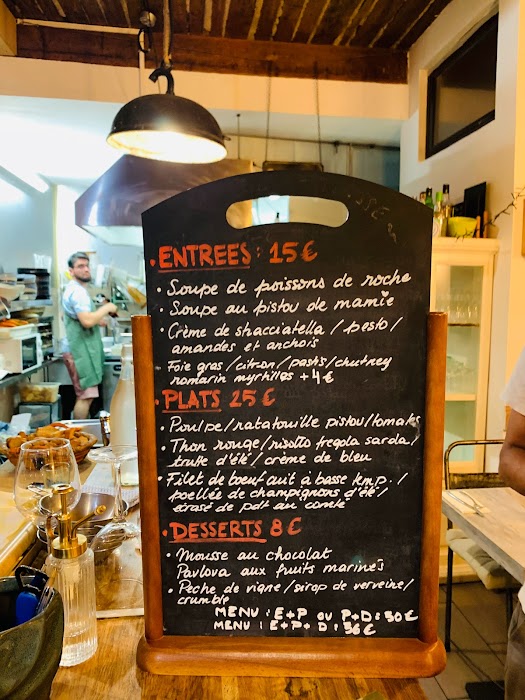 ENTREES : 15€
• Soupe de poissons de roche
• Soupe au pistou de mamie
• Crème de stracciatella / pesto /
amandes et anchois
Foie gras / citron / pastis / chutney
romarin myrtilles + 4€
• PLATS 25€
• Poulpe / ratatouille pistou / tomate
• Thon rouge / risotto fregola sarda /
truffe d'été / crème de bleu
• Filet de bœuf cuit à basse temp. /
poellée de champignons d'été /
écrasé de pdt au comté
• DESSERTS 8€
• Mousse au chocolat
Pavlova aux fruits marinés
• Pêche de vigne / sirop de verveine /
crumble
MENU : E+P ou P+D : 30€
MENU : E+P+D : 36€